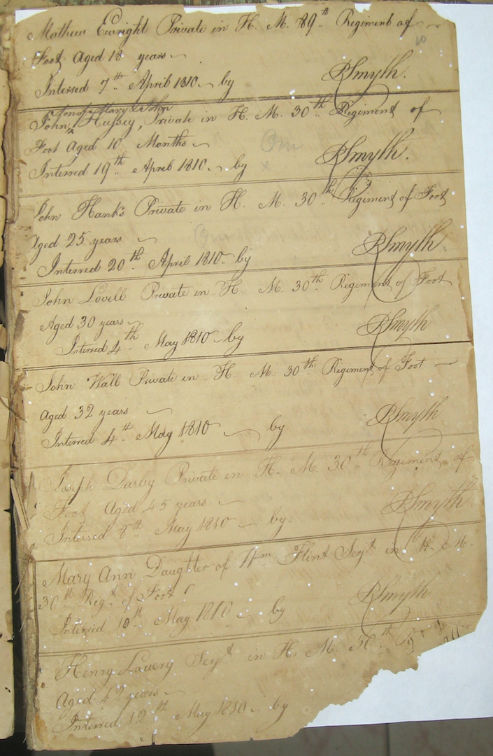 Mathew Enright Private in H. M. 89th Regiment of
Foot Aged 18 years
Interred 7th April 1810 by RSmyth.
son of Mary & John
John Hussey, Private in H. M. 30th Regiment of
Foot Aged 10 Months
Interred 19th April 1810 by x RSmyth.
John Hank's Private in H. M. 30th Regiment of Foot
Aged 25 years
Interred 20th April 1810 by RSmyth.
John Lovell Private in H. M. 30th Regiment of Foot
Aged 30 years
Interred 4th May 1810 by RSmyth
John Wall Private in H. M. 30th Regiment of Foot
Aged 32 years
Interred 4th May 1810 by RSmyth
Joseph Darby Private in H. M. 30th Regiment of
Foot Aged 45 years
Interred 8th May 1810 by RSmyth
Mary Ann Daughter of Wm Flint Serjt in H. M.
30th Regt of Foot
Interred 10th May 1810 by RSmyth
Henry Lawery Serjt in H. M. 30th
Aged 42 years
Interred 12th May 1810 by